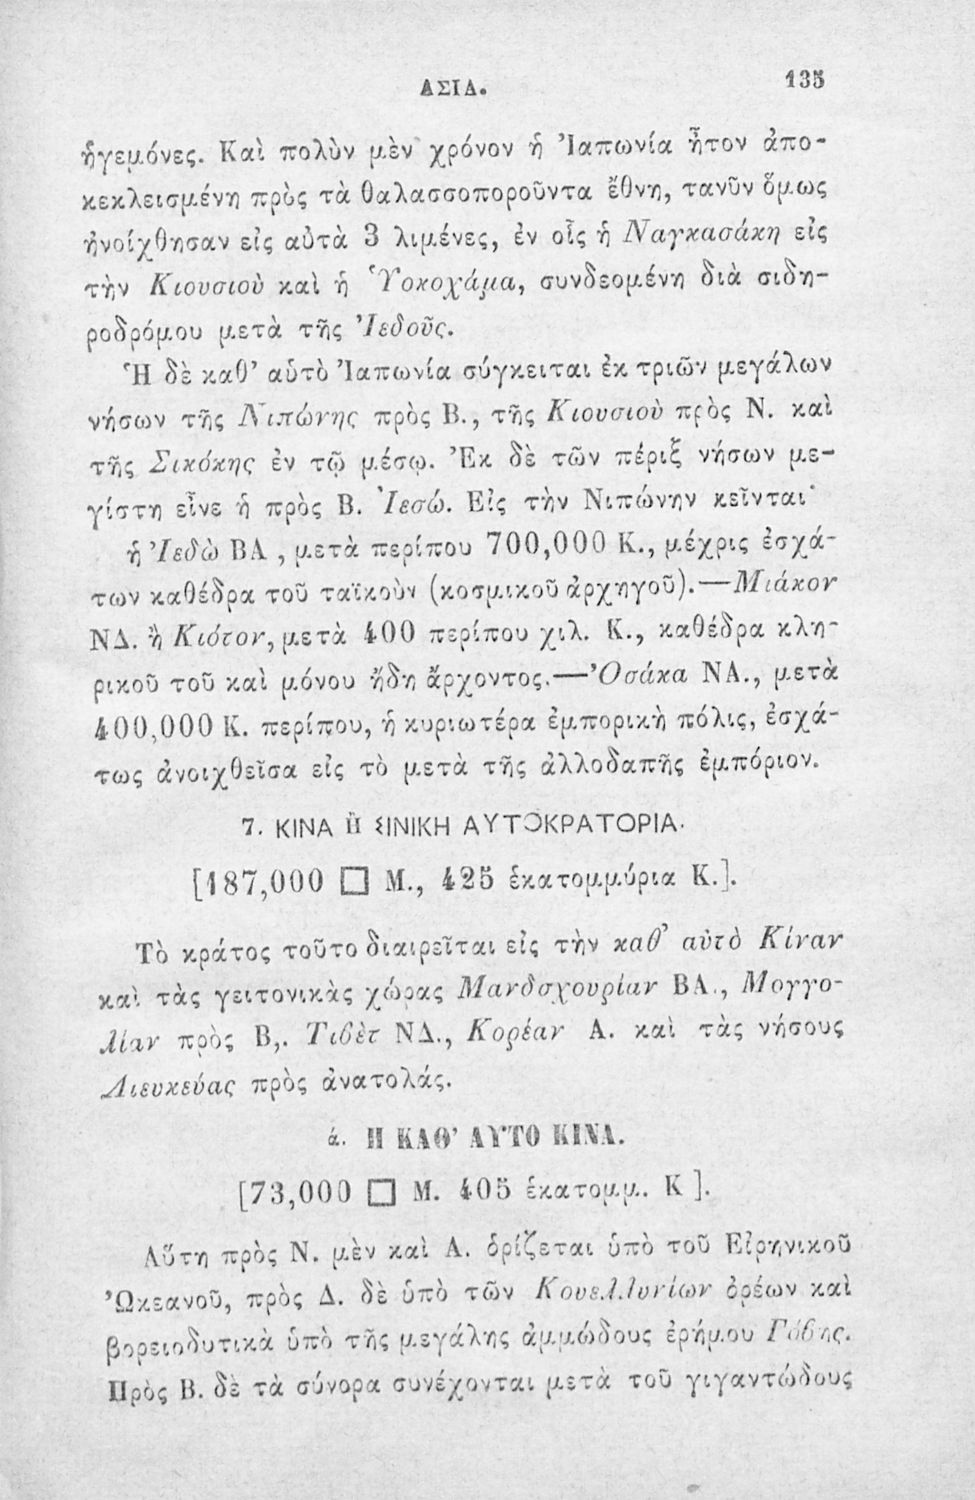 ΑΣΙΑ. 135
ἡγεμόνες. Καὶ πολὺν μὲν χρόνον ἡ Ἰαπωνία ἦτον ἀπο-
κεκλεισμένη πρὸς τὰ θαλασσοποροῦντα ἔθνη, τανῦν ὅμως
ἠνοίχθησαν εἰς αὐτὰ 3 λιμένες, ἐν οἷς ἡ Ναγκασάκη εἰς
τὴν Κιουσιοὺ καὶ ἡ Ὑοκοχάμα, συνδεομένη διὰ σιδη-
ροδρόμου μετὰ τῆς Ἰεδοῦς.
Ἡ δὲ καθ’ αὑτὸ Ἰαπωνία σύγκειται ἐκ τριῶν μεγάλων
νήσων τῆς Νιπώνης πρὸς Β., τῆς Κιουσιοὺ πρὸς Ν. καὶ
τῆς Σικόκης ἐν τῷ μέσῳ. Ἐκ δὲ τῶν πέριξ νήσων με-
γίστη εἶνε ἡ πρὸς Β. Ἰεσώ. Εἰς τὴν Νιπώνην κεῖνται·
ἡ Ἰεδὼ ΒΑ , μετὰ περίπου 700,000 Κ., μέχρις ἐσχά-
των καθέδρα τοῦ ταϊκοὺν (κοσμικοῦ ἀρχηγοῦ).—Μιάκον
ΝΔ. ἢ Κιότον, μετὰ 400 περίπου χιλ. Κ., καθέδρα κλη-
ρικοῦ τοῦ καὶ μόνου ἤδη ἄρχοντος.—Ὀσάκα ΝΑ., μετὰ
400,000 Κ. περίπου, ἡ κυριωτέρα ἐμπορικὴ πόλις, ἐσχά-
τως ἀνοιχθεῖσα εἰς τὸ μετὰ τῆς ἀλλοδαπῆς ἐμπόριον.
7. ΚΙΝΑ Ἢ ΣΙΝΙΚΗ ΑΥΤΟΚΡΑΤΟΡΙΑ.
[187,000 □ Μ., 425 ἑκατομμύρια Κ.].
Τὸ κράτος τοῦτο διαιρεῖται εἰς τὴν καθ’ αὑτὸ Κίναν
καὶ τὰς γειτονικὰς χώρας Μανδσχουρίαν ΒΑ., Μογγο-
λίαν πρὸς Β,. Τιβὲτ ΝΔ., Κορέαν Α. καὶ τὰς νήσους
Λιευκεύας πρὸς ἀνατολάς.
ά. Η ΚΑΘ’ ΑΥΤΟ ΚΙΝΑ.
[73,000 □ Μ. 405 ἑκατομμ. Κ ].
Αὕτη πρὸς Ν. μὲν καὶ Α. ὁρίζεται ὑπὸ τοῦ Εἰρηνικοῦ
Ὠκεανοῦ, πρὸς Δ. δὲ ὑπὸ τῶν Κουελλυνίων ὀρέων καὶ
βορειοδυτικὰ ὑπὸ τῆς μεγάλης ἀμμώδους ἐρήμου Γόβης.
Πρὸς Β. δὲ τὰ σύνορα συνέχονται μετὰ τοῦ γιγαντώδους